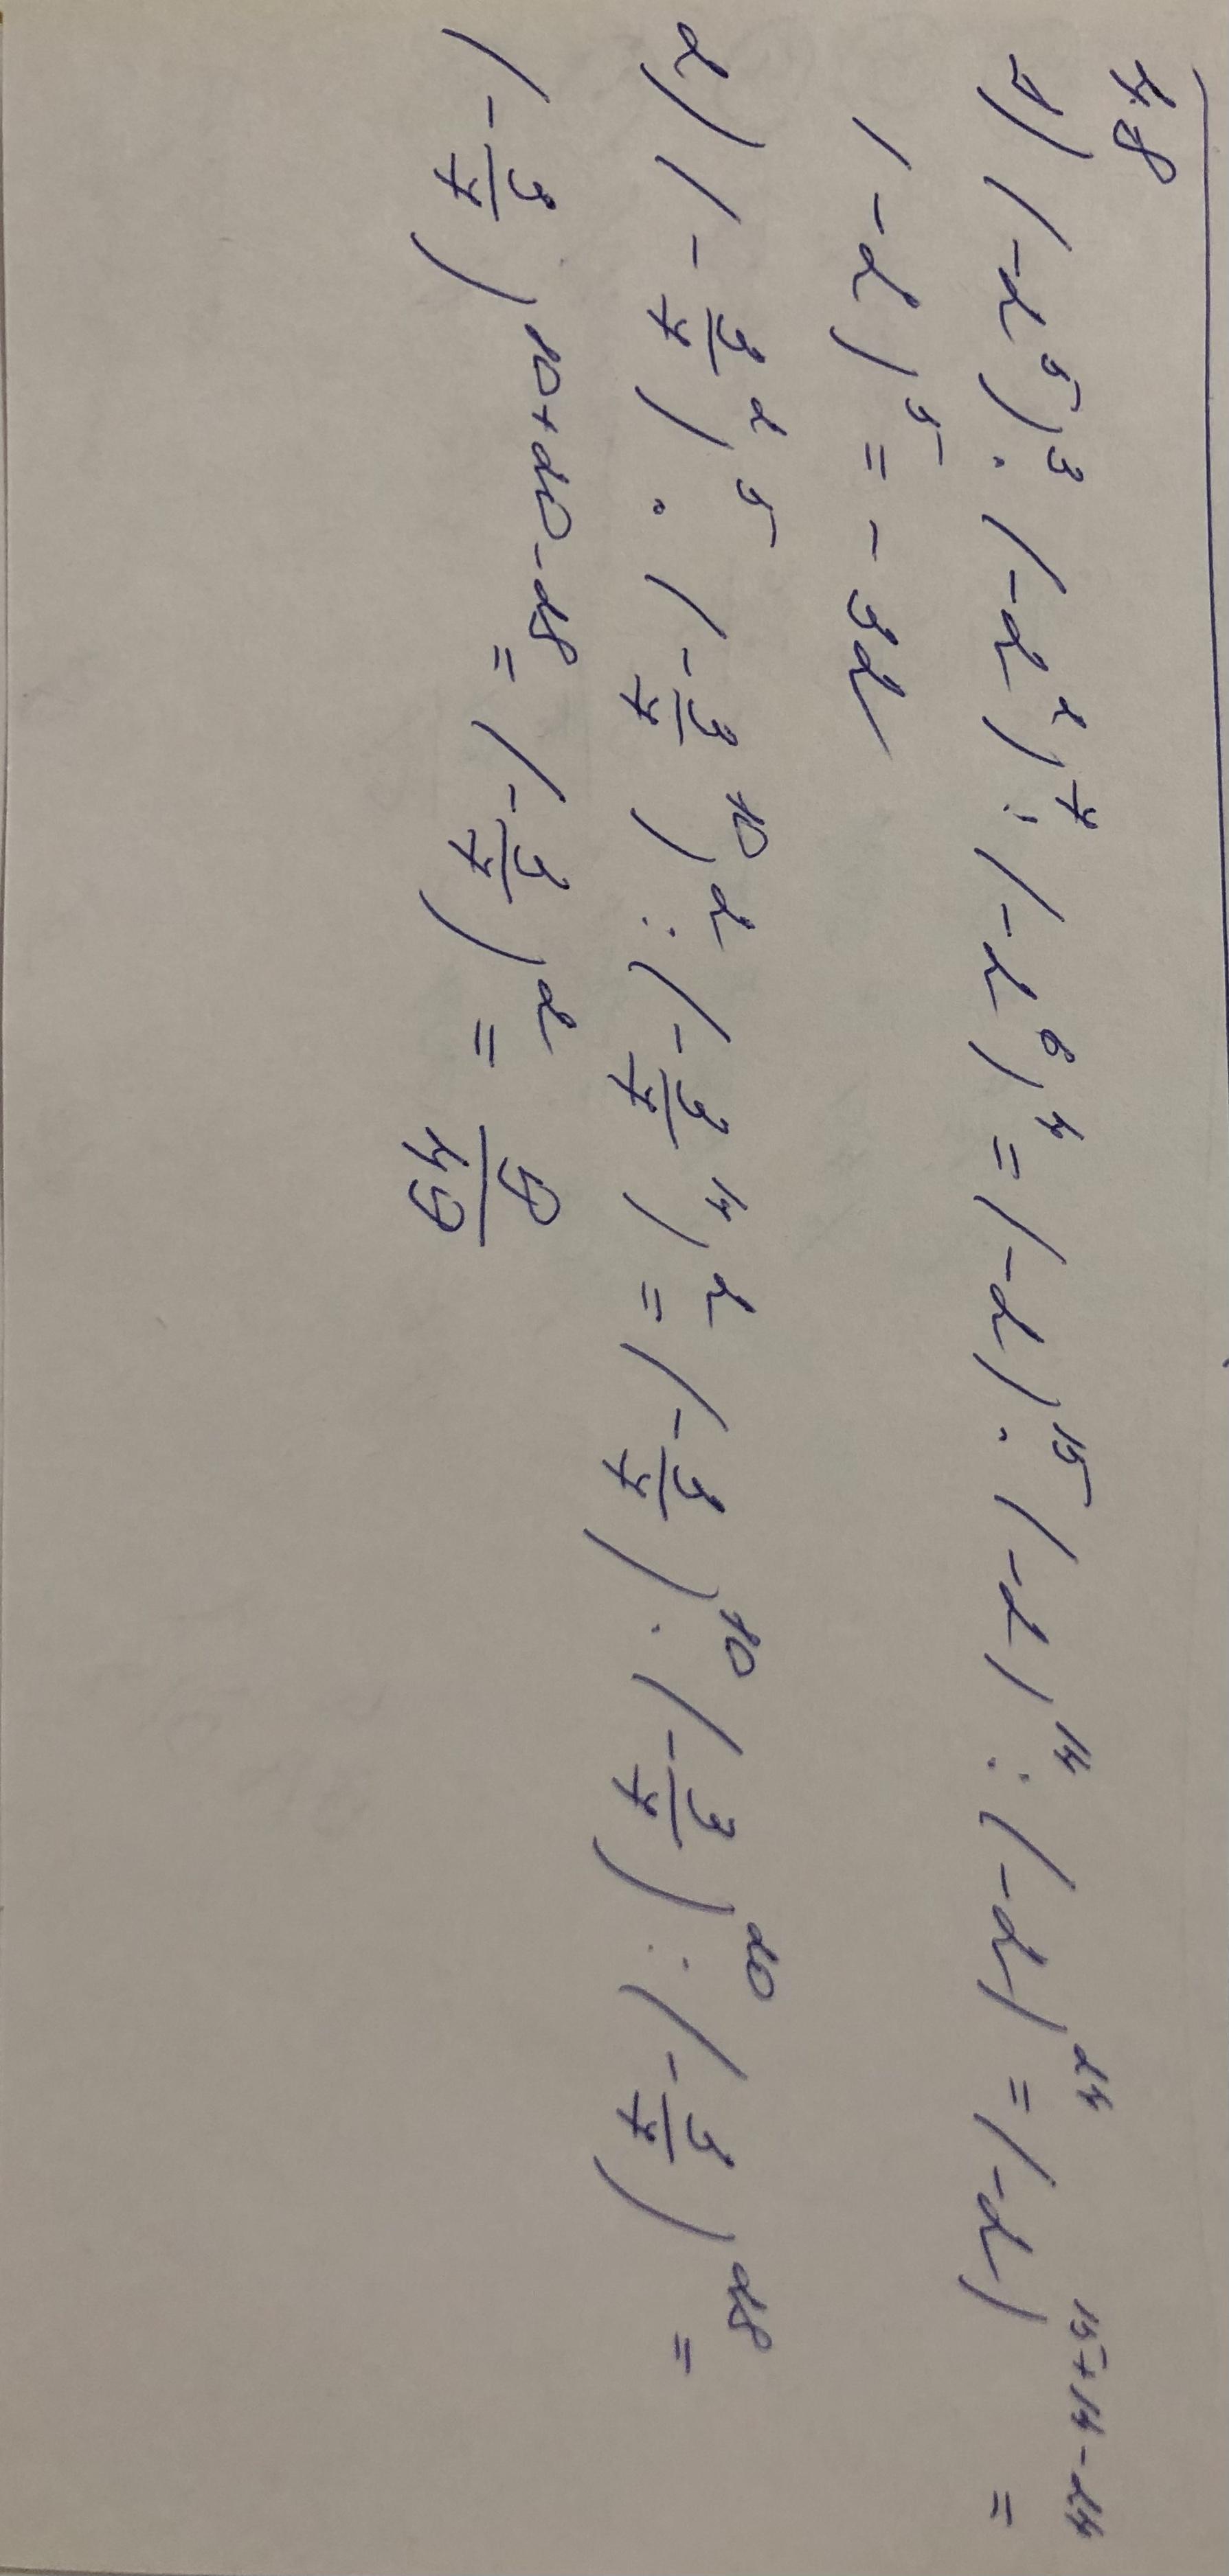 78
1) (-2⁵)³ · (-2²)⁷ : (-2⁶)⁴ = (-2)¹⁵ · (-2)¹⁴ : (-2)²⁴ = (-2)¹⁵⁺¹⁴⁻²⁴ =
(-2)⁵ = -32
2) (-3/7²)⁵ · (-3/7¹⁰)² : (-3/7¹⁴)² = (-3/7)¹⁰ · (-3/7)²⁰ : (-3/7)²⁸ =
(-3/7)¹⁰⁺²⁰⁻²⁸ = (-3/7)² = 9/49